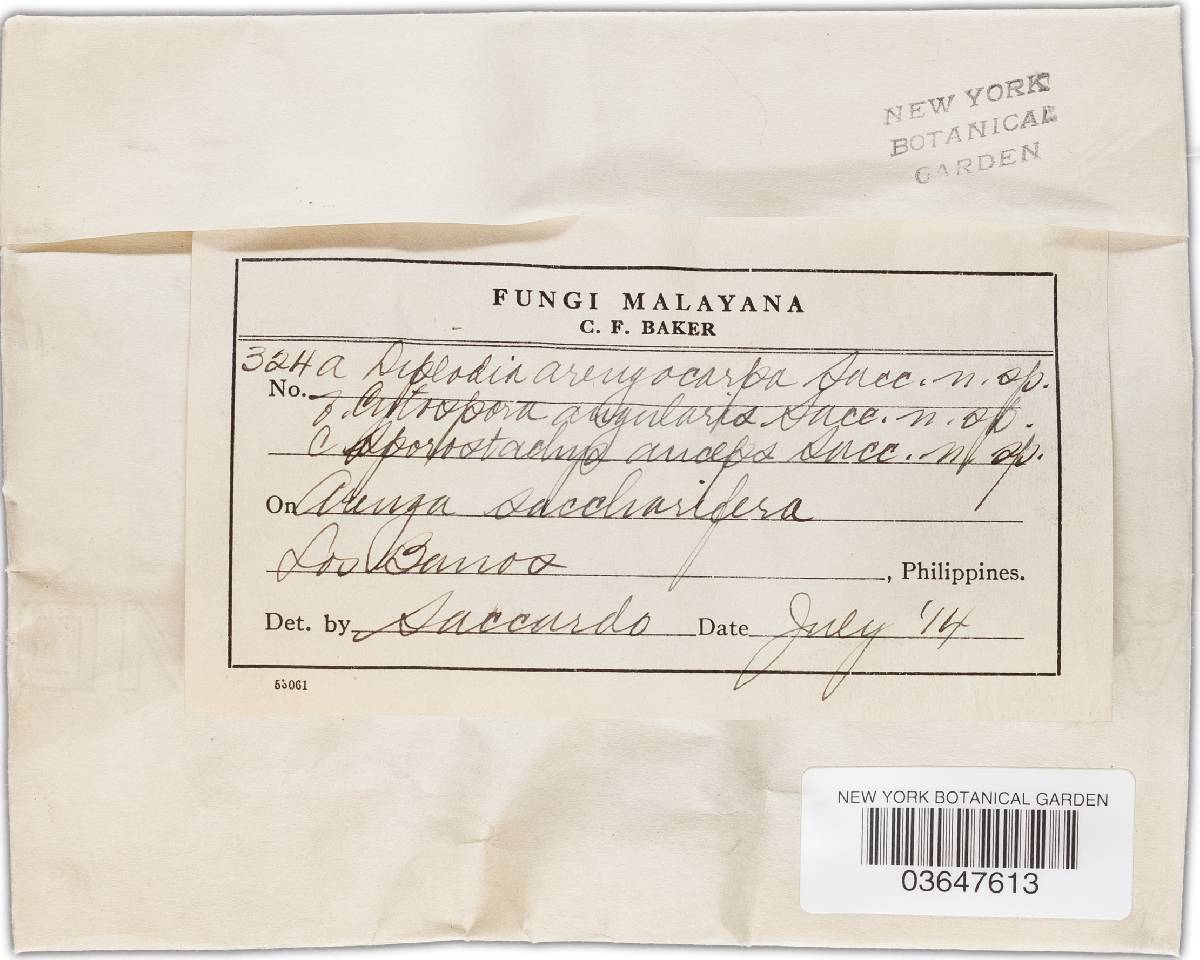 NEW YORK
BOTANICAL
GARDEN
FUNGI MALAYANA
C. F. BAKER
No. 324 a Diplodia arengocarpa Sacc. n. sp.
angularis Sacc. n. sp.
c anceps Sacc. n. sp.
On Arenga saccharifera
Los Banos, Philippines.
Det. by Saccardo Date July '14
53061
NEW YORK BOTANICAL GARDEN
03647613